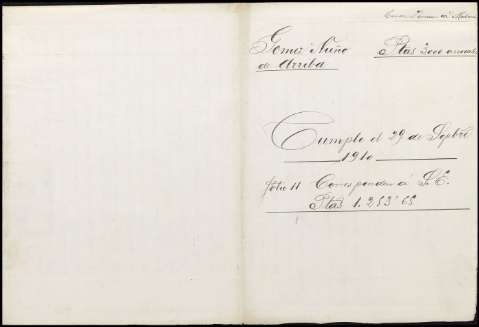 Gomez Nuño
de Arriba
Ptas 3000 anuales
Cumple el 29 de Sepbre
1910
folio 11 Corresponden a
Ptas 1.253'65